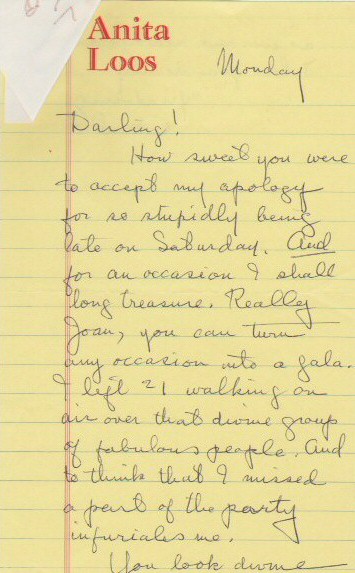 Anita
Loos
Monday
Darling!
How sweet you were
to accept my apology
for so stupidly being
late on Saturday. And
for an occasion I shall
long treasure. Really
Joan, you can turn
any occasion into a gala.
I left 21 walking on
air over that divine group
of fabulous people. And
to think that I missed
a part of the party
infuriates me.
You look divine